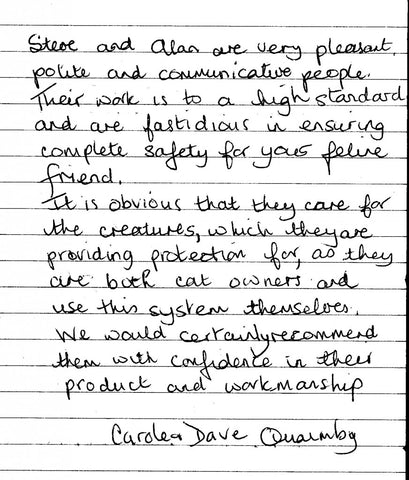 Steve and Alan are very pleasant,
polite and communicative people.
Their work is to a high standard
and are fastidious in ensuring
complete safety for your feline
friend.
It is obvious that they care for
the creatures, which they are
providing protection for, as they
are both cat owners and
use this system themselves.
We would certainly recommend
them with confidence in their
product and workmanship
Carole & Dave Quarmby